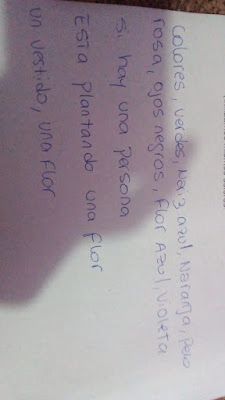 Colores, verdes, Naiz azul, Naranja, pelo
rosa, ojos negros, flor Azul, violeta
si hay una persona
Esta plantando una flor
un vestido, una flor